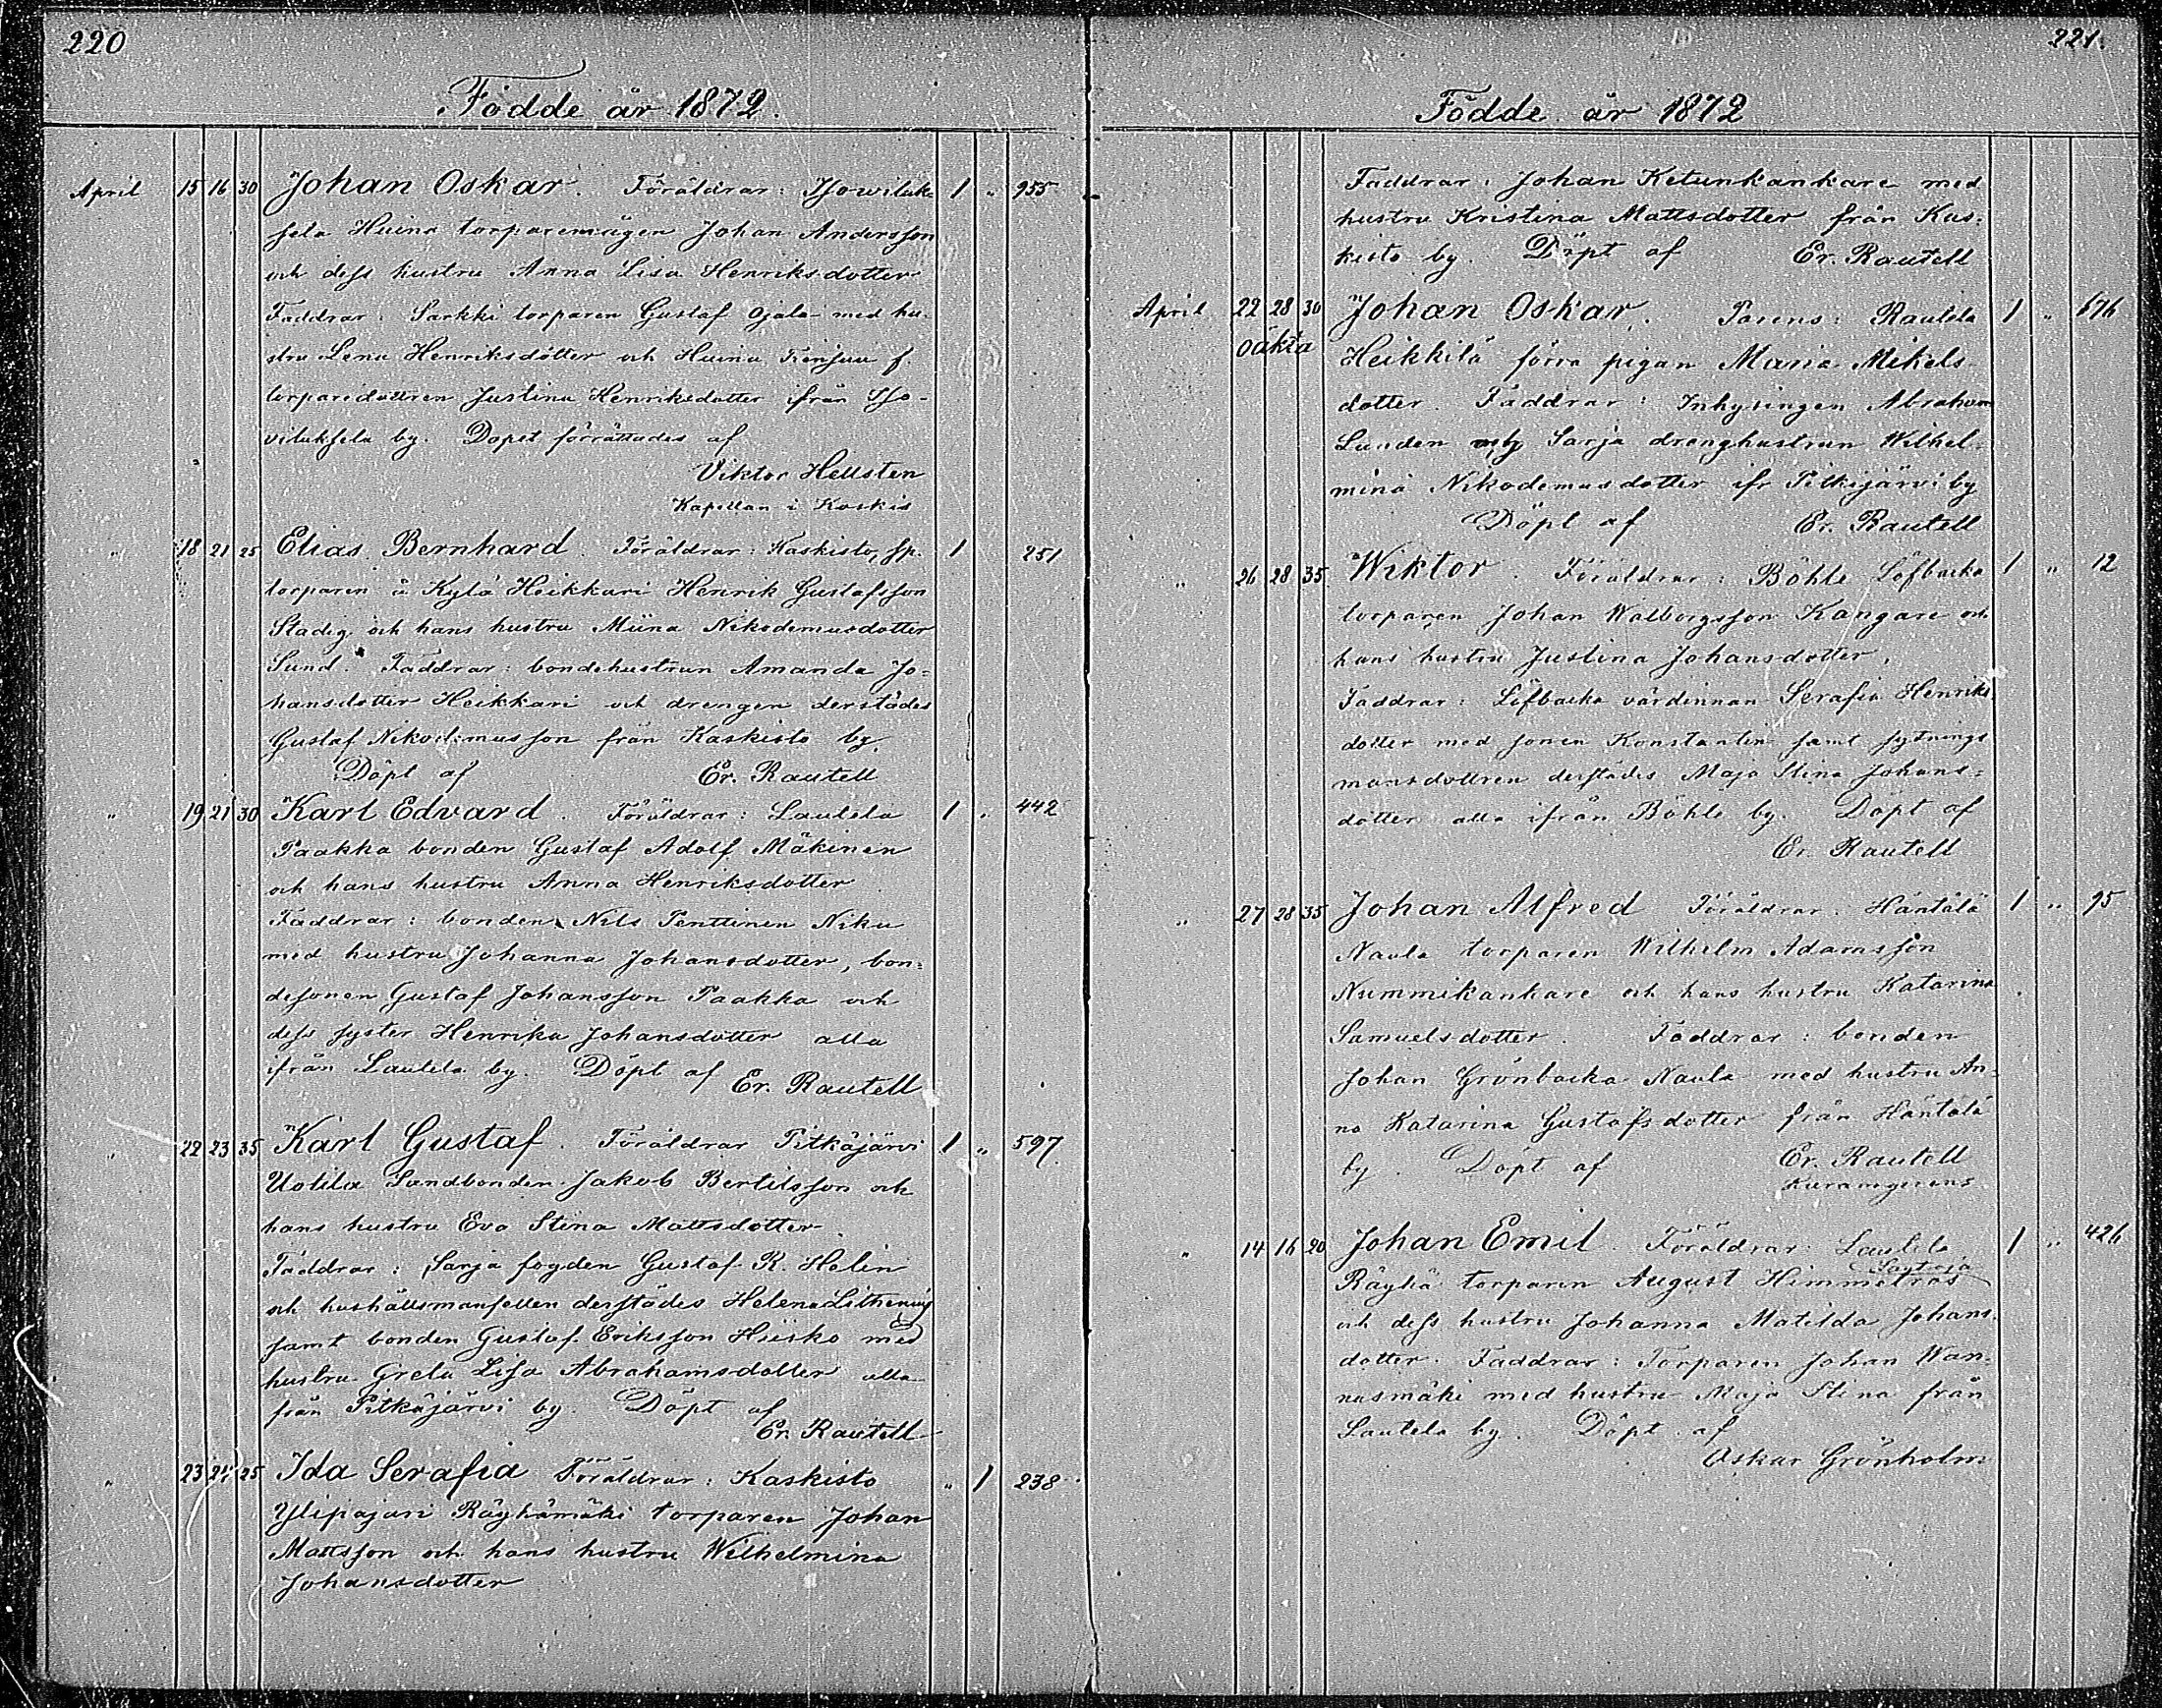 220
Födde år 1872.
April 15 16 30 Johan Oskar. Föräldrar: Isowiluk- 1 " 955
sela Huina torparemågen Johan Andersson
och dess hustru Anna Lisa Henriksdotter
Faddrar: Sarkki torparen Gustaf Ojala med hu-
stru Lena Henriksdotter och Huina f.
torparedottren Justina Henriksdotter ifrån Iso-
viluksela by. Dopet förrättades af
Viktor Hellsten
Kapellan i Koskis
" 18 21 25 Elias Bernhard. Föräldrar: Kaskisto, sp. 1 251
torparen å Kylä Heikkari Henrik Gustafsson
Stadig och hans hustru Miina Nikodemusdotter
Sund. Faddrar: bondehustrun Amanda Jo-
hansdotter Heikkari och drengen derstädes
Gustaf Nikodemusson från Kaskisto by.
Döpt af Er. Rautell
" 19 21 30 Karl Edvard. Föräldrar: Lautela 1 " 442
Paakka bonden Gustaf Adolf Mäkinen
och hans hustru Anna Henriksdotter
Faddrar: bonden Nils Penttinen Niku
med hustru Johanna Johansdotter, bon-
desonen Gustaf Johansson Paakka och
dess syster Henrika Johansdotter alla
ifrån Lautela by. Döpt af Er. Rautell
" 22 23 35 Karl Gustaf. Föräldrar Pitkäjärvi 1 " 597
Uotila Landbonden Jakob Bertilsson och
hans hustru Eva Stina Mattsdotter
Faddrar: Sarja fogden Gustaf R. Helin
och hushållsmansellen derstädes Helena
samt bonden Gustaf Eriksson Hiisko med
hustru Greta Lisa Abrahamsdotter alla
från Pitkäjärvi by. Döpt af
Er. Rautell
" 23 24 25 Ida Serafia Föräldrar: Kaskisto " 1 238
Ylipajari Räyhämäki torparen Johan
Mattsson och hans hustru Wilhelmina
Johansdotter
221.
Födde år 1872
Faddrar: Johan Ketunkankare med
hustru Kristina Mattsdotter från Kas-
kisto by. Döpt af Er. Rautell
April 22 28 30 Johan Oskar. Parens: Rautela 1 " 676
oäkta Heikkilä förra pigan Maria Mikels-
dotter. Faddrar: Inhysingen Abraham
Lunden och Sarja drenghustrun Wilhel-
mina Nikodemusdotter ifr Pitkäjärvi by
Döpt af Er. Rautell
" 26 28 35 Wiktor. Föräldrar: Böhle Löfbacka 1 " 12
torparen Johan Walborgsson Kangare och
hans hustru Justina Johansdotter.
Faddrar: Löfbacka värdinnan Serafia Henriks
dotter med sonen Konstantin samt sytnings
mansdottren derstädes Maja Stina Johans-
dotter alla ifrån Böhle by. Döpt af
Er. Rautell
" 27 28 35 Johan Alfred Föräldrar: Häntälä 1 " 95
Naula torparen Wilhelm Adamsson
Nummikankare och hans hustru Katarina
Samuelsdotter. Faddrar: bonden
Johan Grönbacka Naula med hustru An-
na Katarina Gustafsdotter från Häntälä
by. Döpt af Er. Rautell
Kuramgerens
" 14 16 20 Johan Emil. Föräldrar: Lautela 1 " 426
Räyhä torparen August Himmelros
och dess hustru Johanna Matilda Johans-
dotter. Faddrar: Torparen Johan Wan-
nasmäki med hustru Maja Stina från
Lautela by. Döpt af
Oskar Grönholm